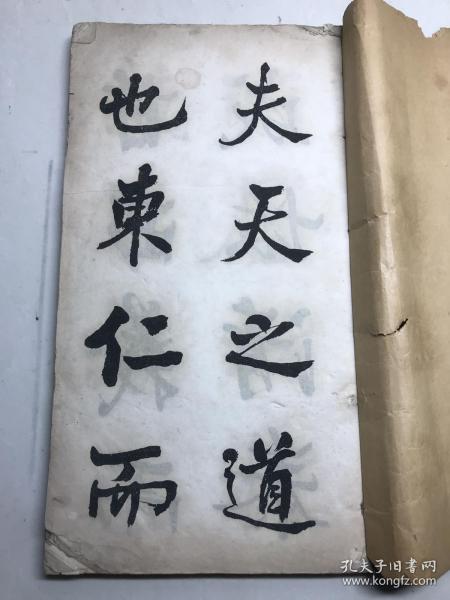 夫天之道
也東仁而
孔夫子旧书网
www.kongfz.com